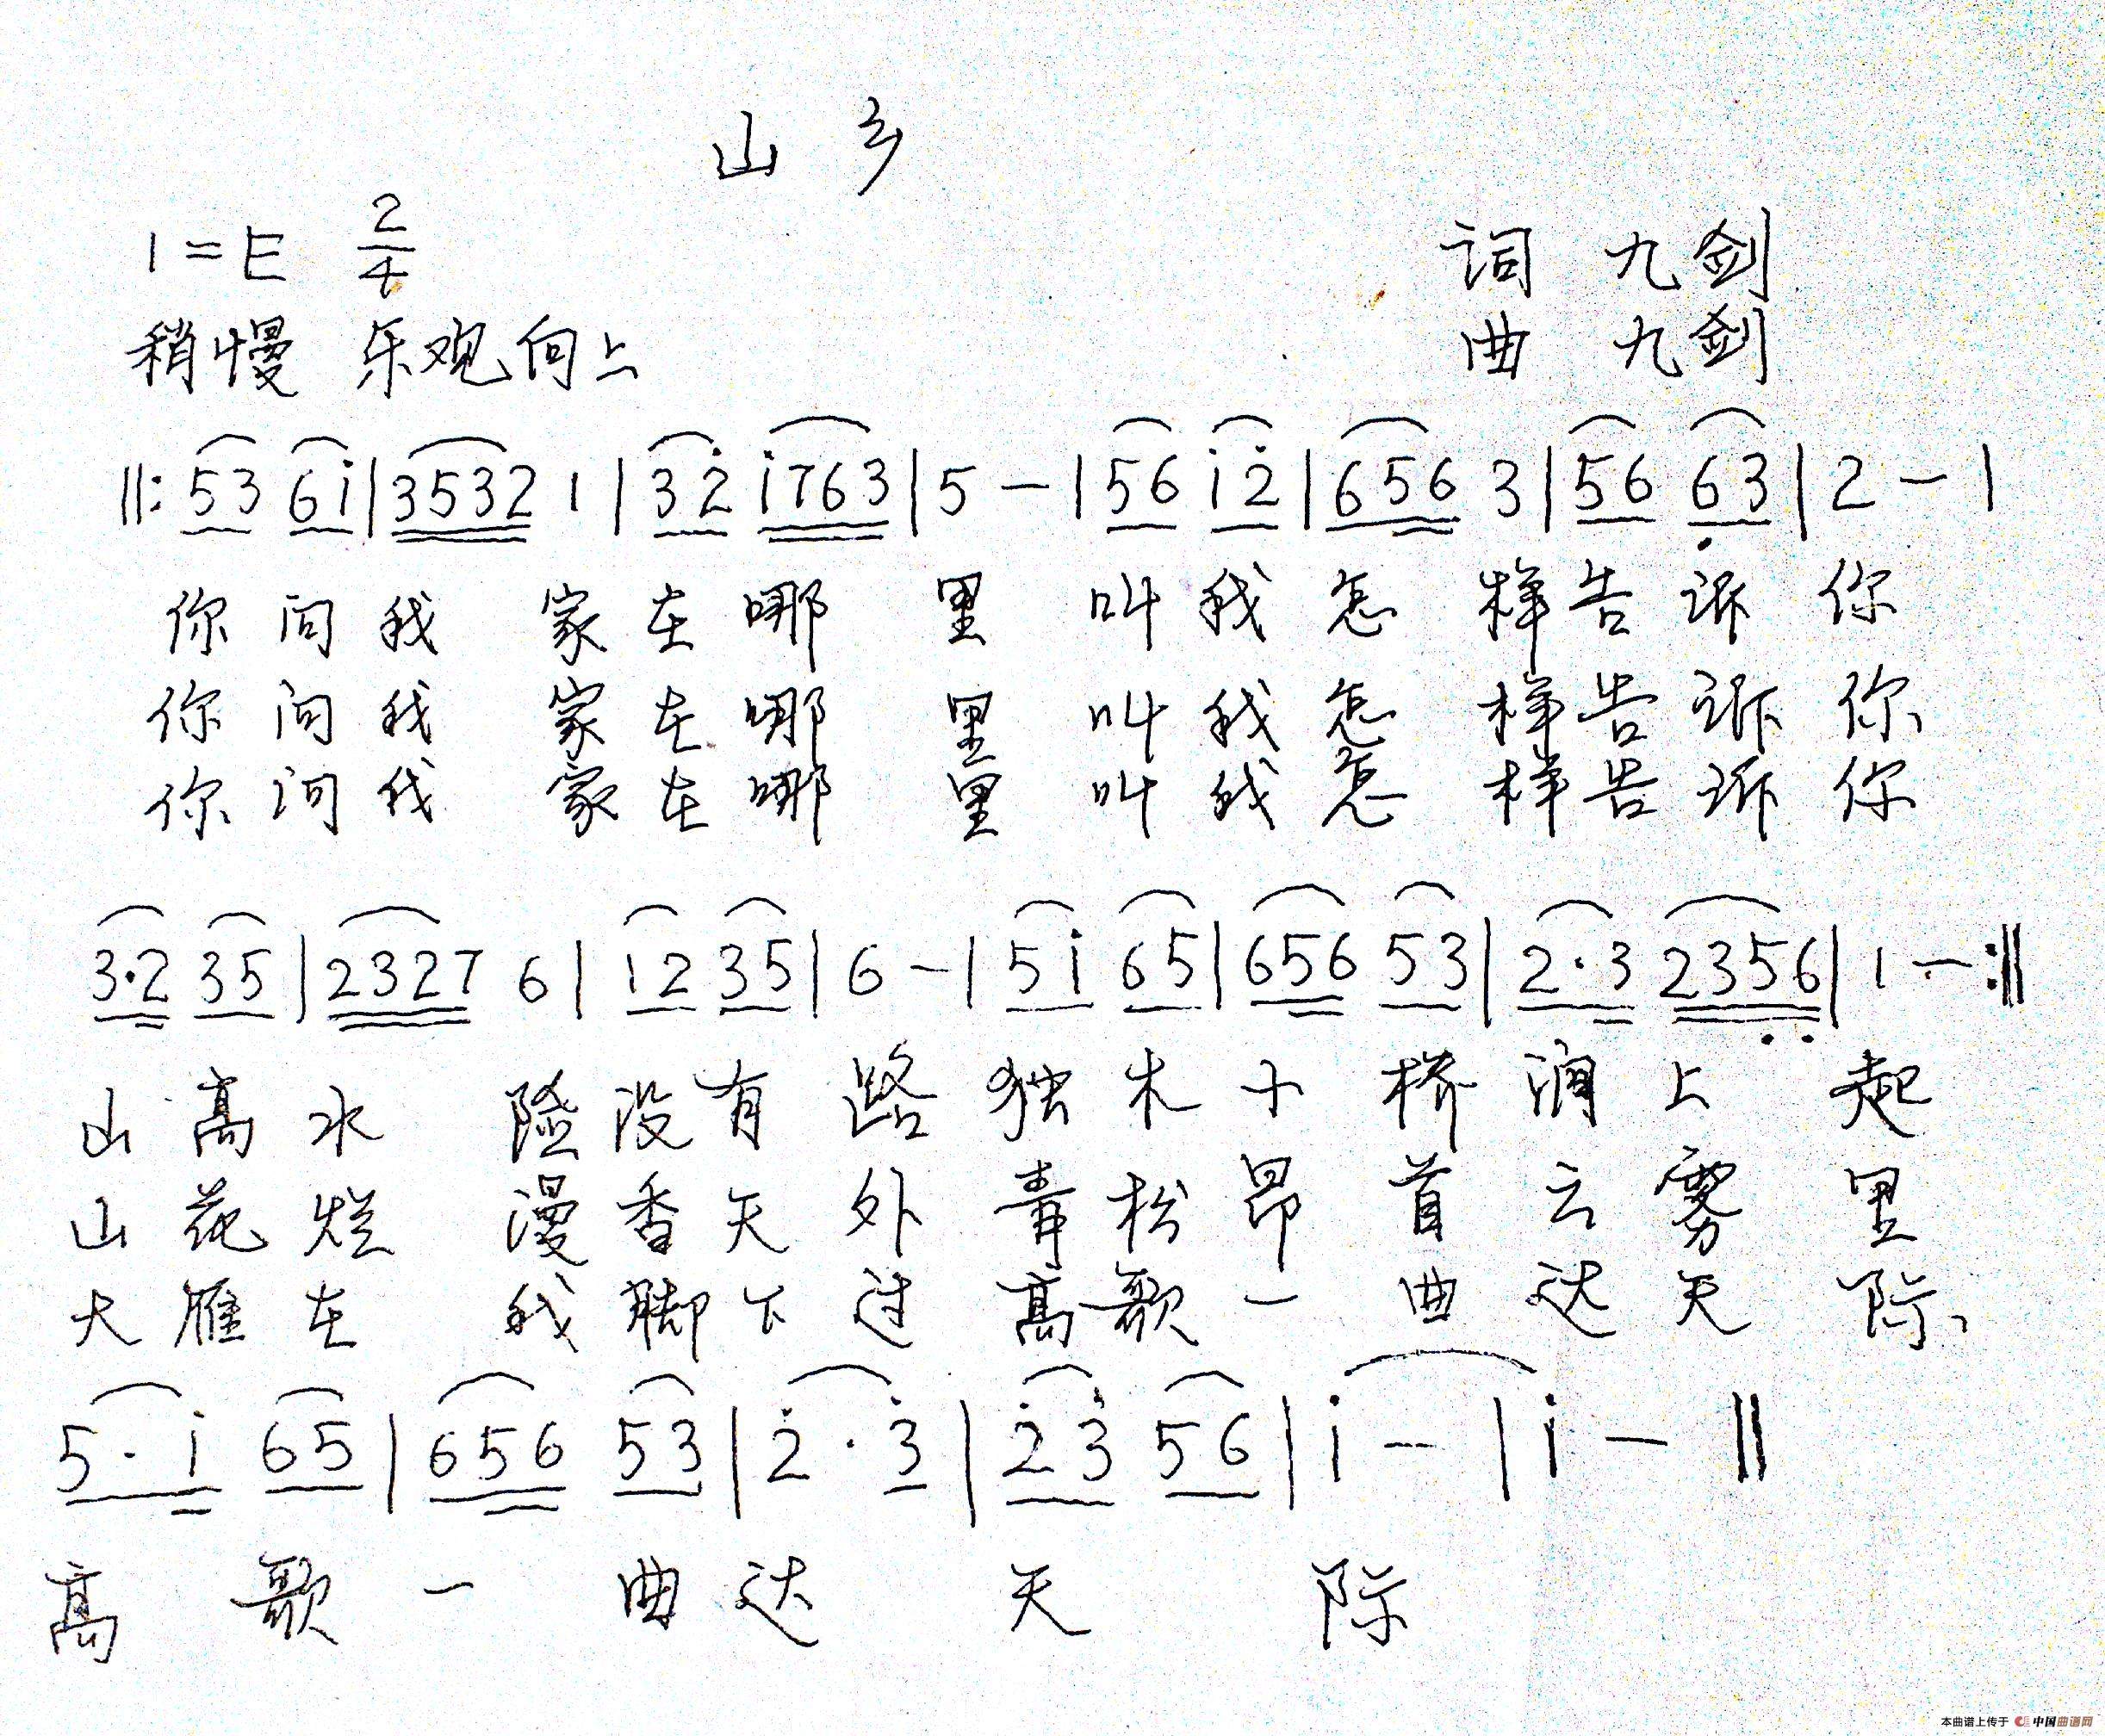 山乡
1=E 2/4
词 九剑
稍慢 乐观向上
曲 九剑
‖: 53 6i | 3532 1 | 32̇ i763 | 5 — | 56 i2̇ | 656 3 | 56 6̣3 | 2 — |
你问我 家在哪 里 叫我怎 样告诉你
你问我 家在哪 里 叫我怎 样告诉你
你问我 家在哪 里 叫我怎 样告诉你
3·2 35 | 2327 6 | 12 35 | 6 — | 5i 65 | 656 53 | 2·3 235̣6̣ | 1 — :‖
山高水 险没有 路 独木小 桥涧上 起
山花烂 漫香天 外 青松昂 首云雾 里
大雁在 我脚下 过 高歌一 曲达天 际
5·i 65 | 656 53 | 2̇·3̇ | 2̇3̇ 56 | i — | i — ‖
高 歌 一 曲 达 天 际
本曲谱上传于 中国曲谱网